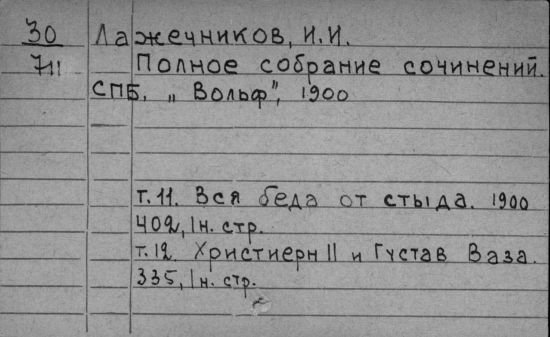 30 Лажечников, И.И.
711 Полное собрание сочинений.
СПБ, „Вольф", 1900
т.11. Вся беда от стыда. 1900
402, 1н. стр.
т.12. Христиерн II и Густав Ваза.
335, 1н. стр.